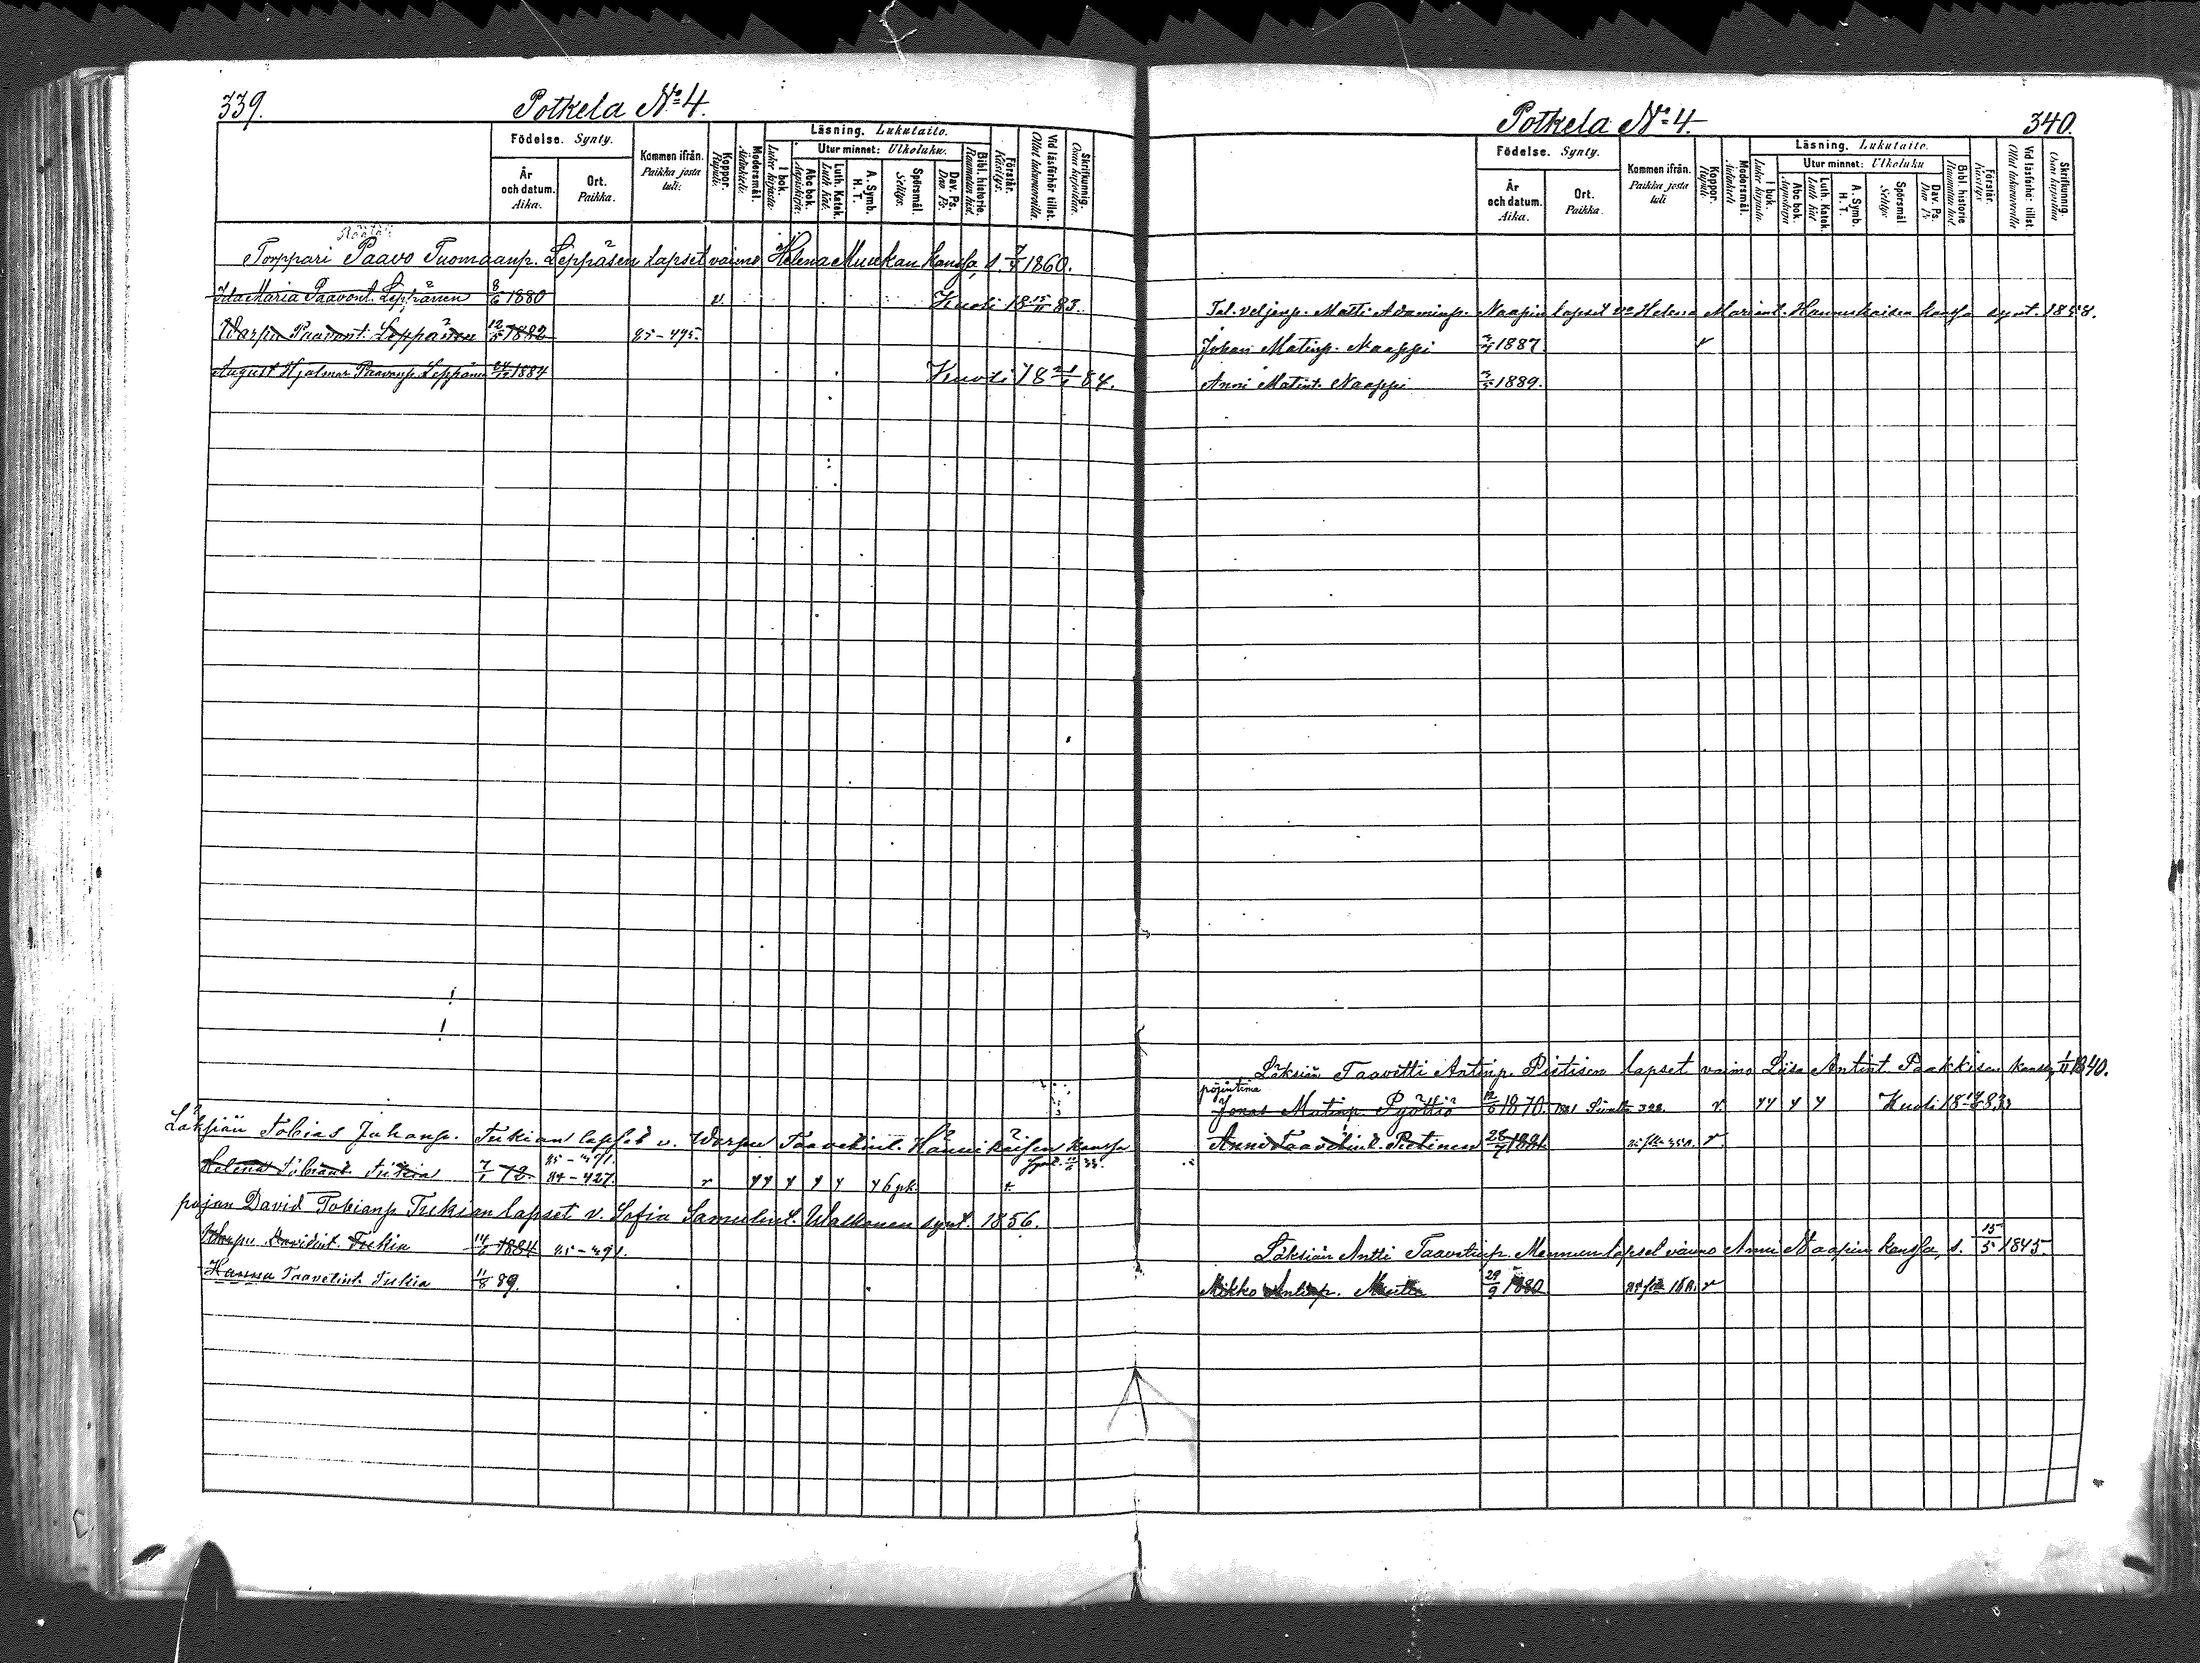 339.
Potkela No 4.
Födelse. Synty.
År och datum. Aika.
Ort. Paikka.
Kommen ifrån. Paikka josta tuli:
Koppor. Rupuli.
Modersmål. Äidinkieli.
Läsning. Lukutaito.
I bok. Luku kirjasta.
Utur minnet: Ulkoluku.
Abc bok. Aapiskirja.
Luth. Katek. Luth. Kat.
A. Symb. H. T.
Spörsmål. Selitys.
Dav. Ps. Dav. Ps.
Bibl. historie. Raamatun hist.
Förstår. Käsitys.
Vid läsförhör tillst. Ollut lukuvuorolla.
Skrifkunnig. Osaa kirjoittaa.
Räätäli
Torppari Paavo Tuomaanp. Leppäsen lapset vaimo Helena Muukan kanssa, s. 7/7 1860.
Ida Maria Paavont. Leppänen 8/6 1880 v. Kuoli 18 15/11 83.
Warpu Paavont. Leppänen 12/5 1882 85-495.
August Hjalmar Paavonp. Leppänen 24/12 1884 Kuoli 18 21/1 84.
Läksiän Tobias Juhanp. Tukian lapset v. Warpu Taavetint. Hännikäisen kanssa
85-491.
Helena Tobiant. Tukia 7/1 72. 84-427. v 6 pk.
pojan David Tobianp Tukian lapset v. Sofia Samulint. Walkonen synt. 1856.
Warpu Davidint. Tukia 14/6 1884 85-491.
Hanna Taavetint. Tukia 11/8 89.
Potkela No 4.
340.
Födelse. Synty.
År och datum. Aika.
Ort. Paikka.
Kommen ifrån. Paikka josta tuli
Koppor. Rupuli.
Modersmål. Äidinkieli.
Läsning. Lukutaito.
I bok. Luku kirjasta.
Utur minnet: Ulkoluku
Abc bok.
Luth. Katek. Luth Kat
A. Symb. H. T.
Spörsmål Selitys
Dav. Ps. Dav Ps
Bibl. historie Raamatun hist.
Förstår. Käsitys
Vid läsförhör tillst. Ollut lukuvuorolla
Skrifkunnig. Osaa kirjoittaa
Tal. veljenp. Matti Adaminp. Naapin lapset vo Helena Mariant. Hannukaisen kanssa synt. 1858.
Johan Matinp. Naappi 1887. v
Anni Matint. Naappi 1889.
Läksiän Taavetti Antinp. Pietisen lapset vaimo Liisa Antint. Paakkisen kanssa 1840.
pojintima
Jonas Matinp. Pyöttiö 12/5 1870. v Kuoli 18 83
Anni Taavetint. Pietinen 28/7 1881 v.
Läksiän Antti Taavetinp. Mennun lapset vaimo Anni Naapin kanssa, s. 15/5 1845.
Mikko Antinp. 29/9 1880 v